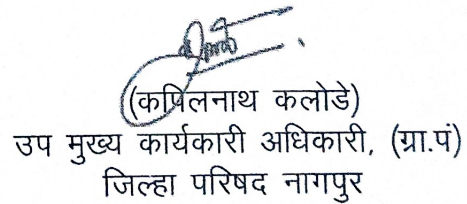 (कपिलनाथ कलोडे)
उप मुख्य कार्यकारी अधिकारी, (ग्रा.पं)
जिल्हा परिषद नागपुर